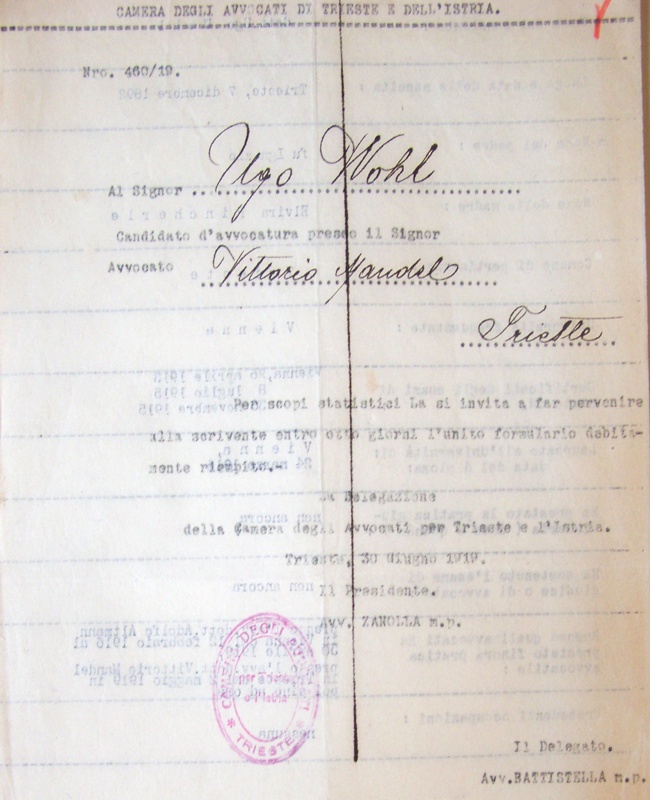 CAMERA DEGLI AVVOCATI DI TRIESTE E DELL'ISTRIA.
Nro. 460/19.
Al Signor Ugo Wohl
Candidato d'avvocatura presso il Signor
Avvocato Vittorio Mandel
Trieste
Per scopi statistici La si invita a far pervenire
alla scrivente entro otto giorni l'unito formulario debita-
mente riempito.-
La Delegazione
della Camera degli Avvocati per Trieste e l'Istria.
Trieste, 30 giugno 1919.
Il Presidente.
Avv. ZANOLLA m.p.
CAMERA DEGLI AVVOCATI
per Trieste
e l'Istria
* TRIESTE *
Il Delegato.
Avv.BATTISTELLA m.p.